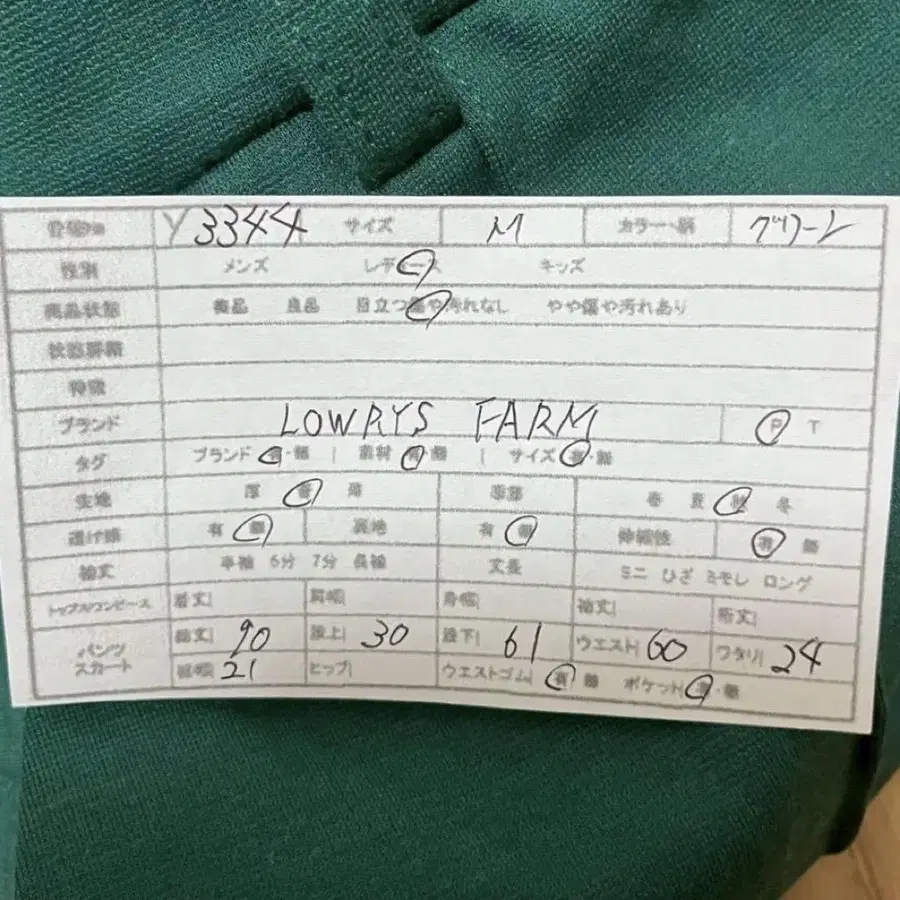 Y 3344 サイズ M カラー・柄 グリーン
性別 メンズ レディース キッズ
商品状態 美品 良品 目立つ傷や汚れなし やや傷や汚れあり
状態詳細
特徴
ブランド LOWRYS FARM P T
タグ ブランド 有・無 | 素材 有・無 | サイズ 有・無
生地 厚 普 薄 季節 春 夏 秋 冬
透け感 有 無 裏地 有 無 伸縮性 有 無
袖丈 半袖 5分 7分 長袖 丈長 ミニ ひざ ミモレ ロング
トップス/ワンピース 着丈| 肩幅| 身幅| 袖丈| 裄丈|
パンツ スカート 総丈| 90 股上| 30 股下| 61 ウエスト| 60 ワタリ| 24
裾幅| 21 ヒップ| ウエストゴム| 有 無 ポケット| 有・無